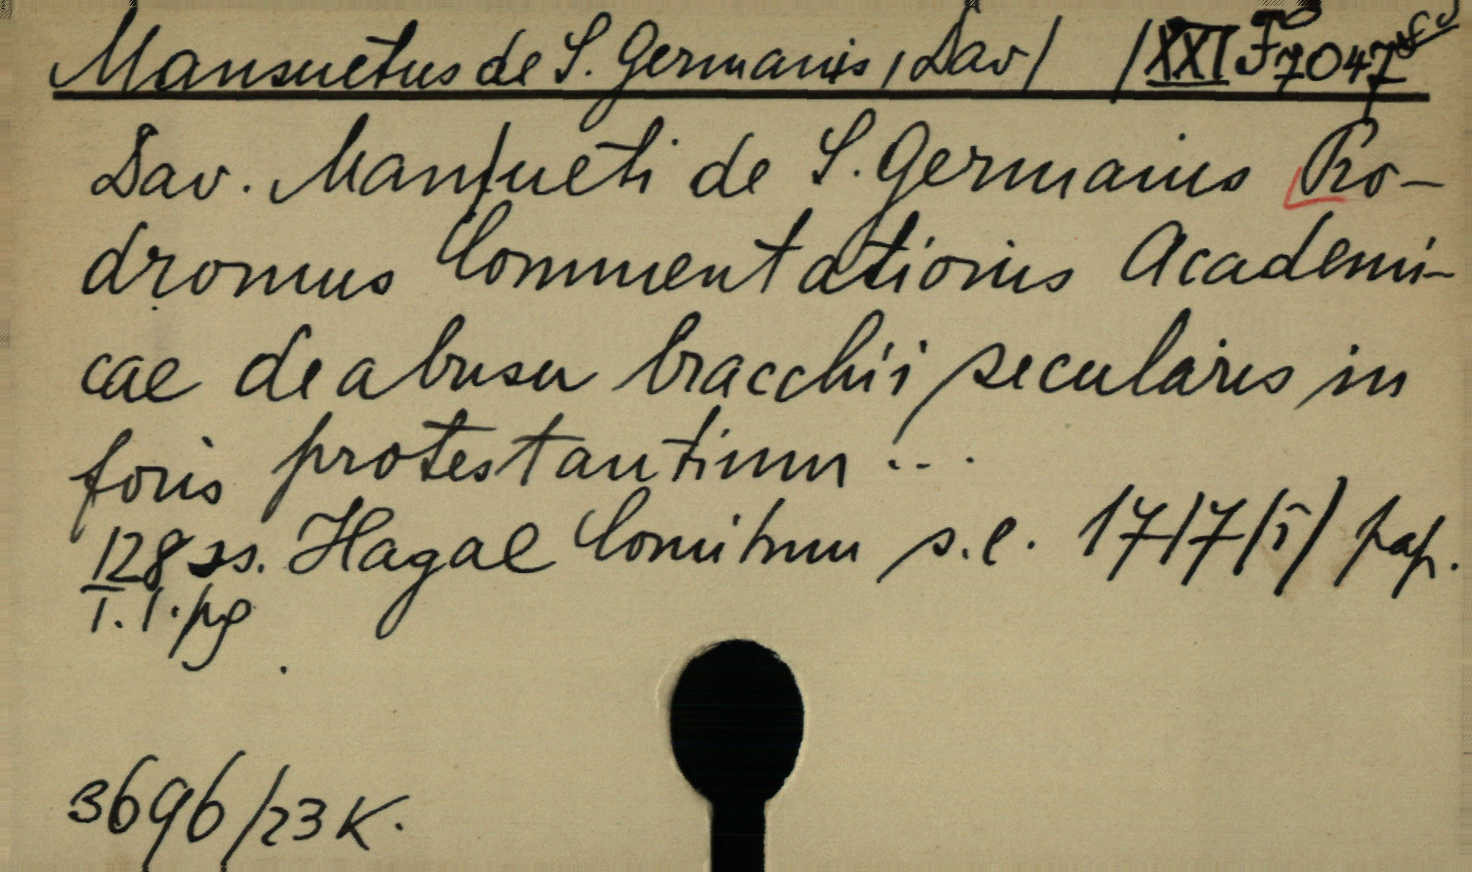 Mansuetus de S. Germanis, Dav/ /XXI F 7047
Dav. Manſueti de S. Germanius Pro-
dromus Commentationis Academi-
cae de abusu bracchii secularis in
foris protestantium...
128 ss. Hagae Comitum s.e. 17/7/I/ pap.
I. 1. pg
3696/23 K.